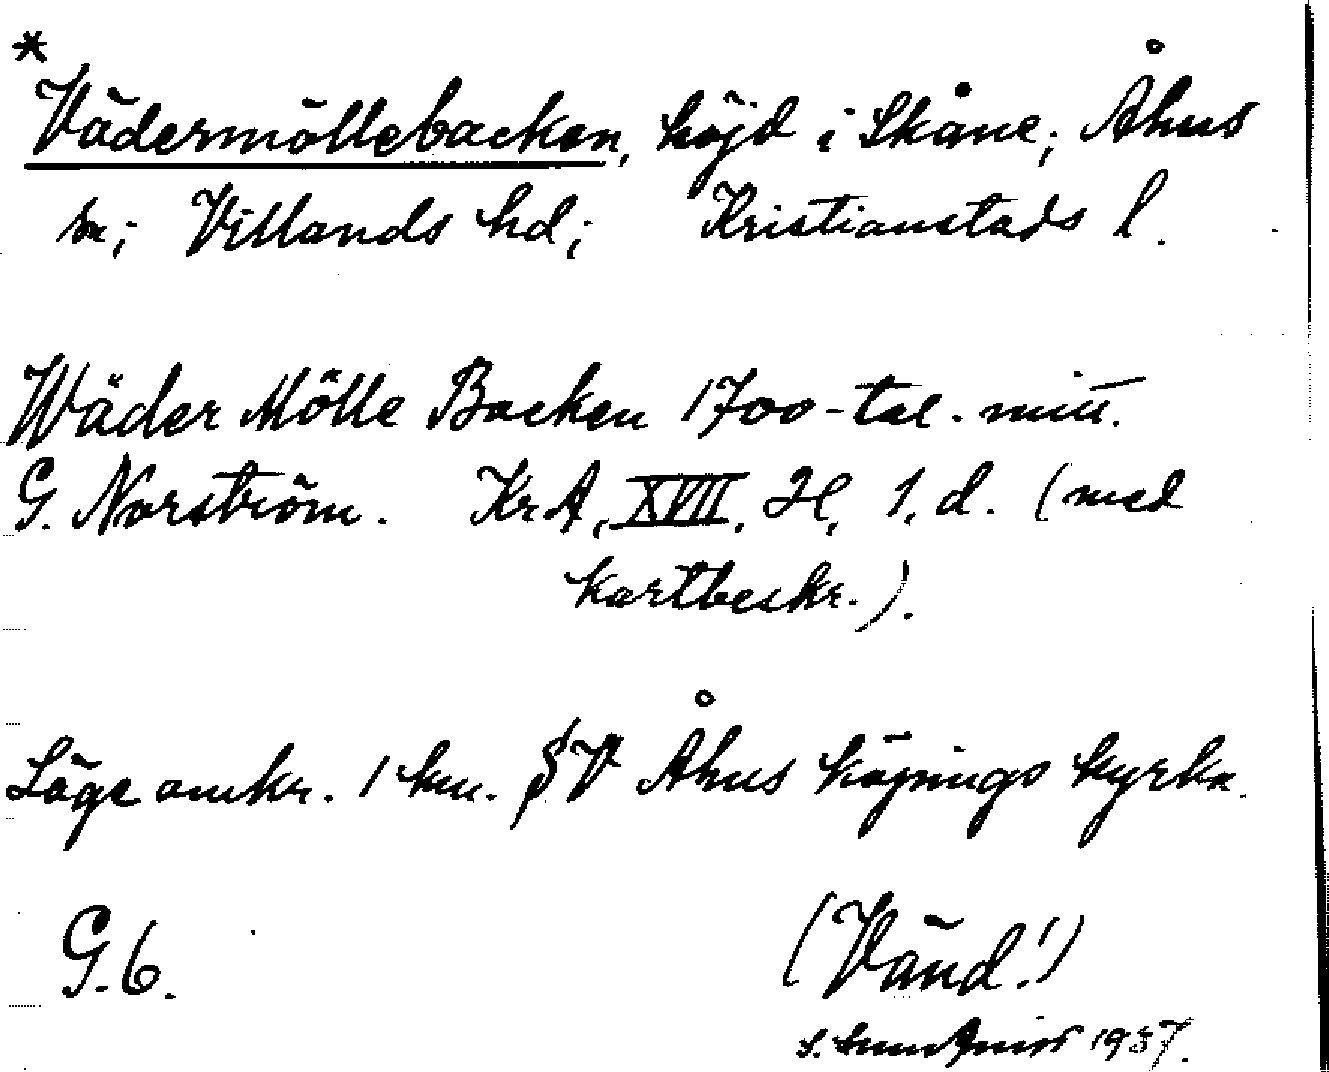 *
Vädermöllebacken, höjd i Skåne; Åhus
sn; Villands hd; Kristianstads l.
Wäder Mölle Backen 1700-tal. mitt.
G. Norström. KrA, XVII, H, 1, d. (med
kartbeskr.).
Läge omkr. 1 km. SV Åhus köpings kyrka.
G.6. (Vänd!)
S. 1937.